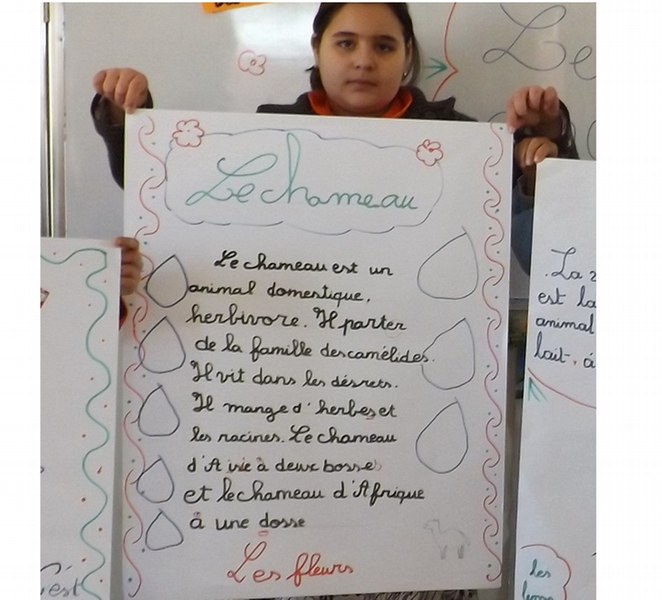 Le
Le chameau
Le chameau est un
animal domestique,
herbivore. Il parter
de la famille des camélides.
Il vit dans les désrets.
Il mange d'herbes et
les racines. Le chameau
d'A vie à deux bosse
et le chameau d'Afrique
à une dosse
Les fleurs
La
est la
animal
lait, à
les
c'est